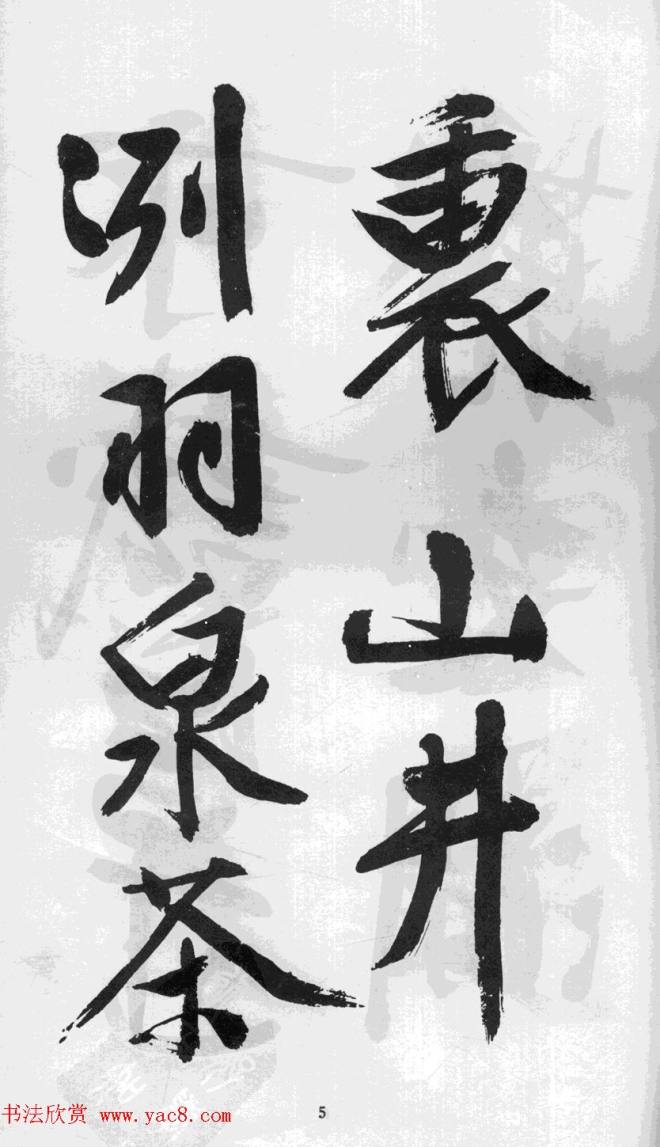 裏山井
洌羽泉茶
5
书法欣赏 www.yac8.com